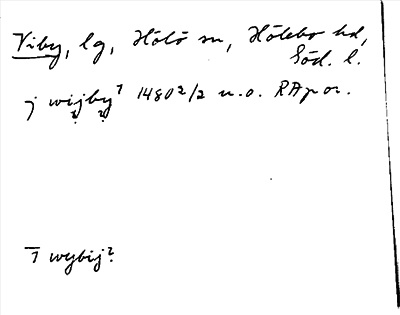 Viby, lg, Hölö sn, Hölebo hd,
Söd. l.
j wijby¹ 1480 2/2 n.o. RAp or.
? ?
1 wybij?